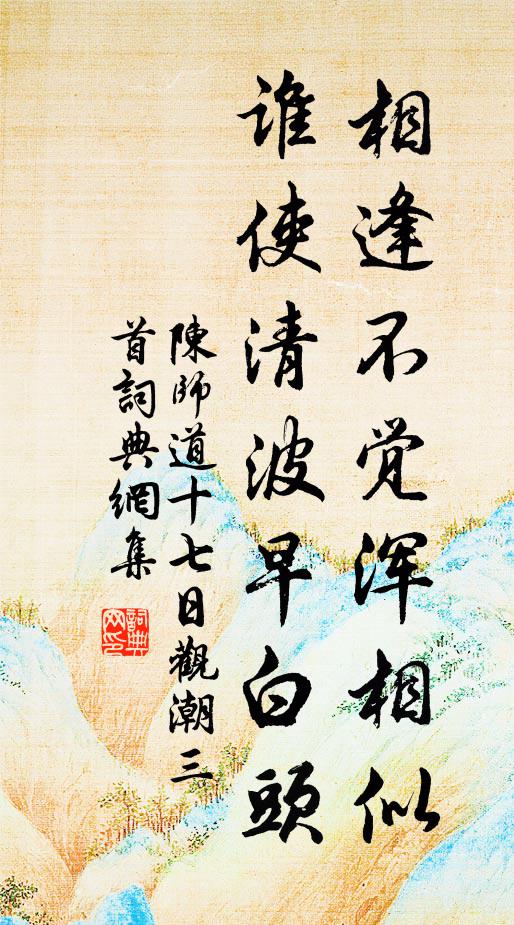 相逢不觉浑相似
谁使清波早白頭
陳師道十七日觀潮三
首詞典網集
詞典
网印